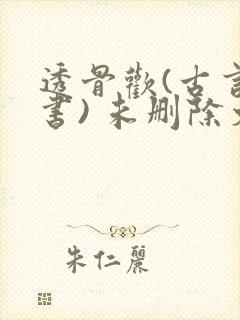 透骨歡(古言
書)未删除
朱仁麗